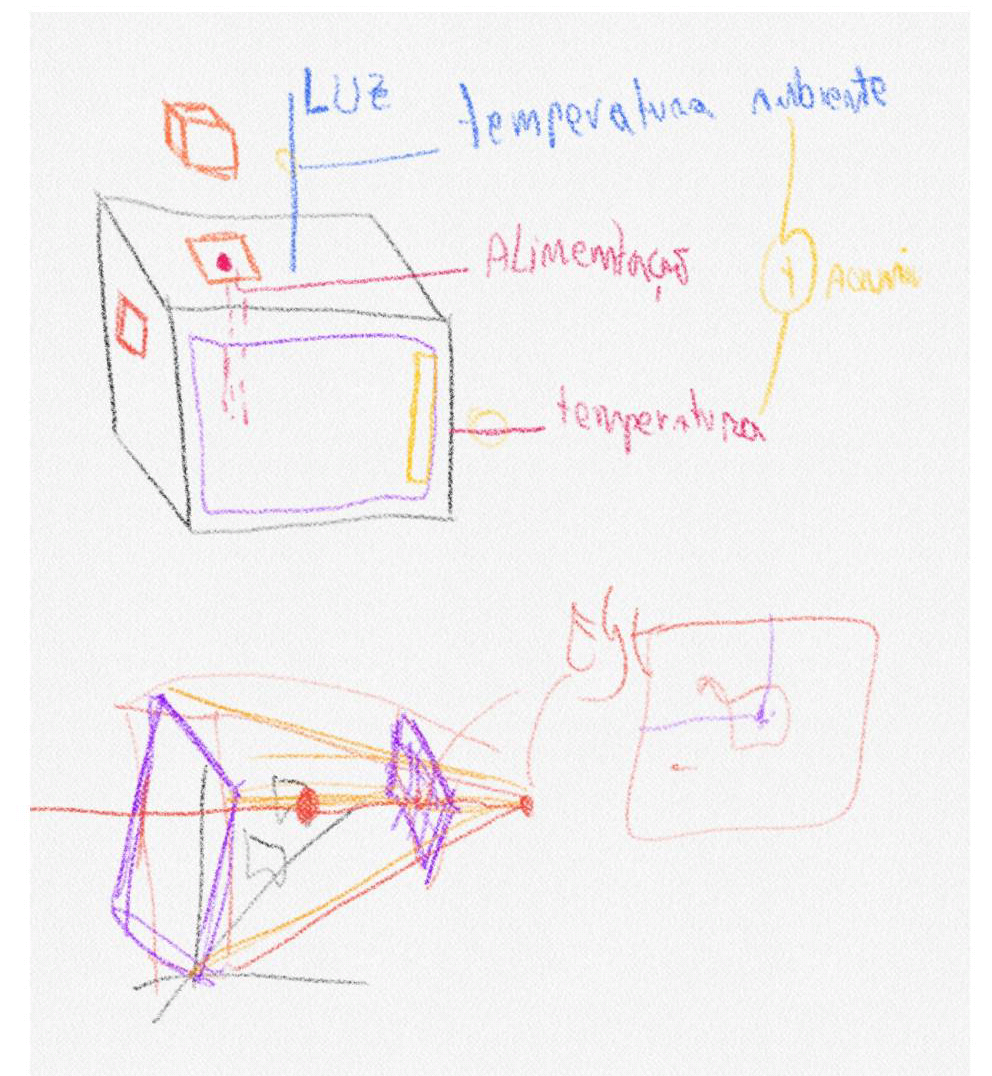 LUZ
temperatura ambiente
ALimentação
temperatura